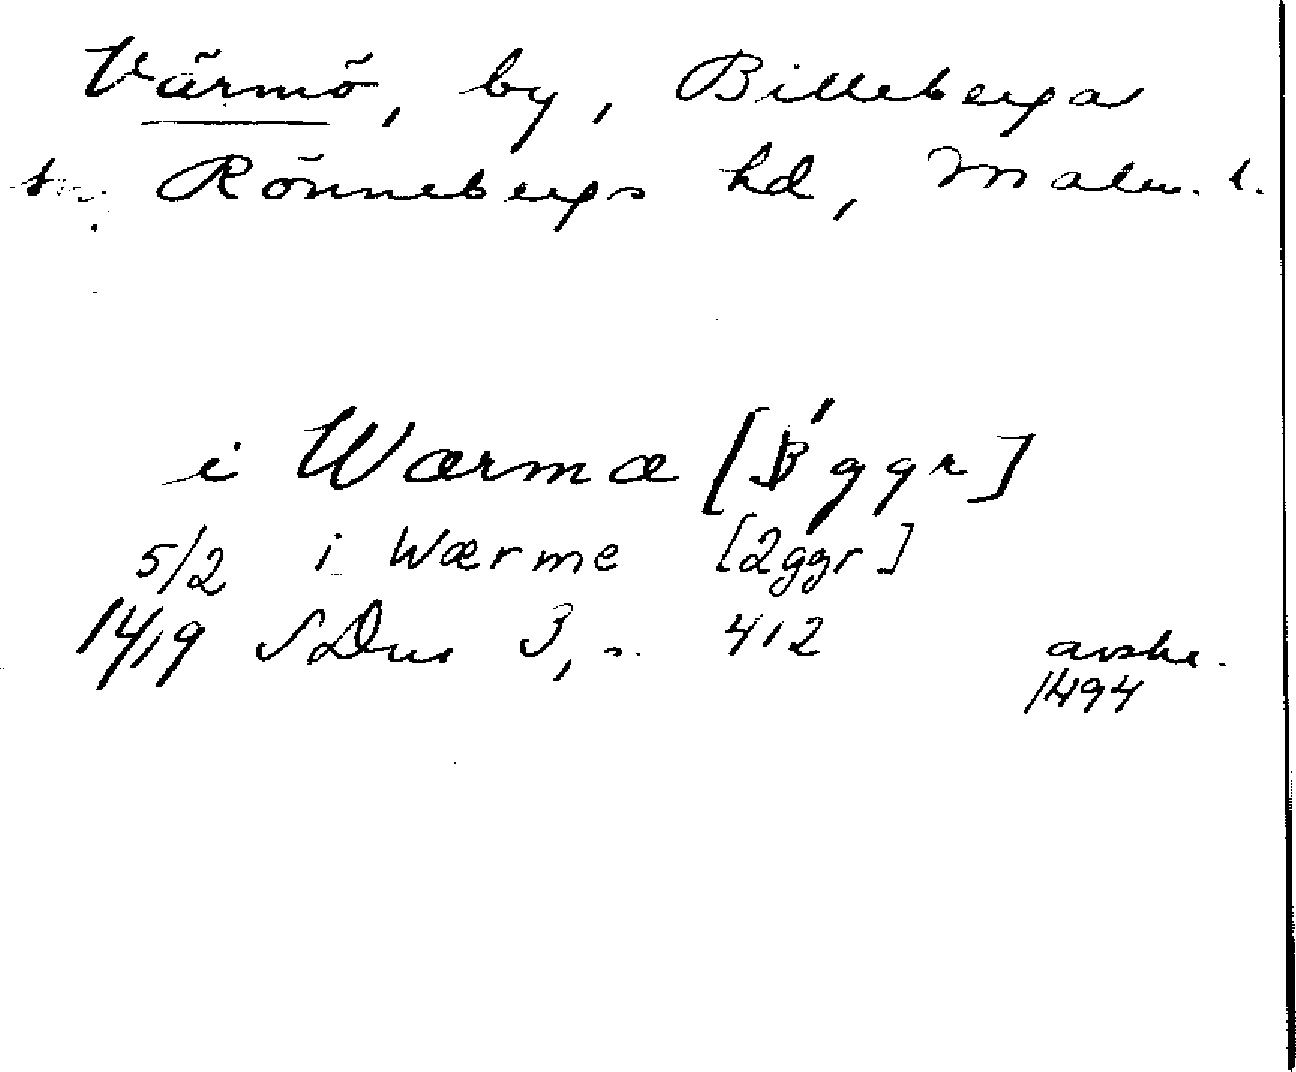 Värmö, by, Billeberga
sn, Rönnebergs hd, Malm. l.
i Wærmæ [ ggr]
5/2 i Wærme [2ggr]
1419 SDns 3, s. 412 avskr.
1494